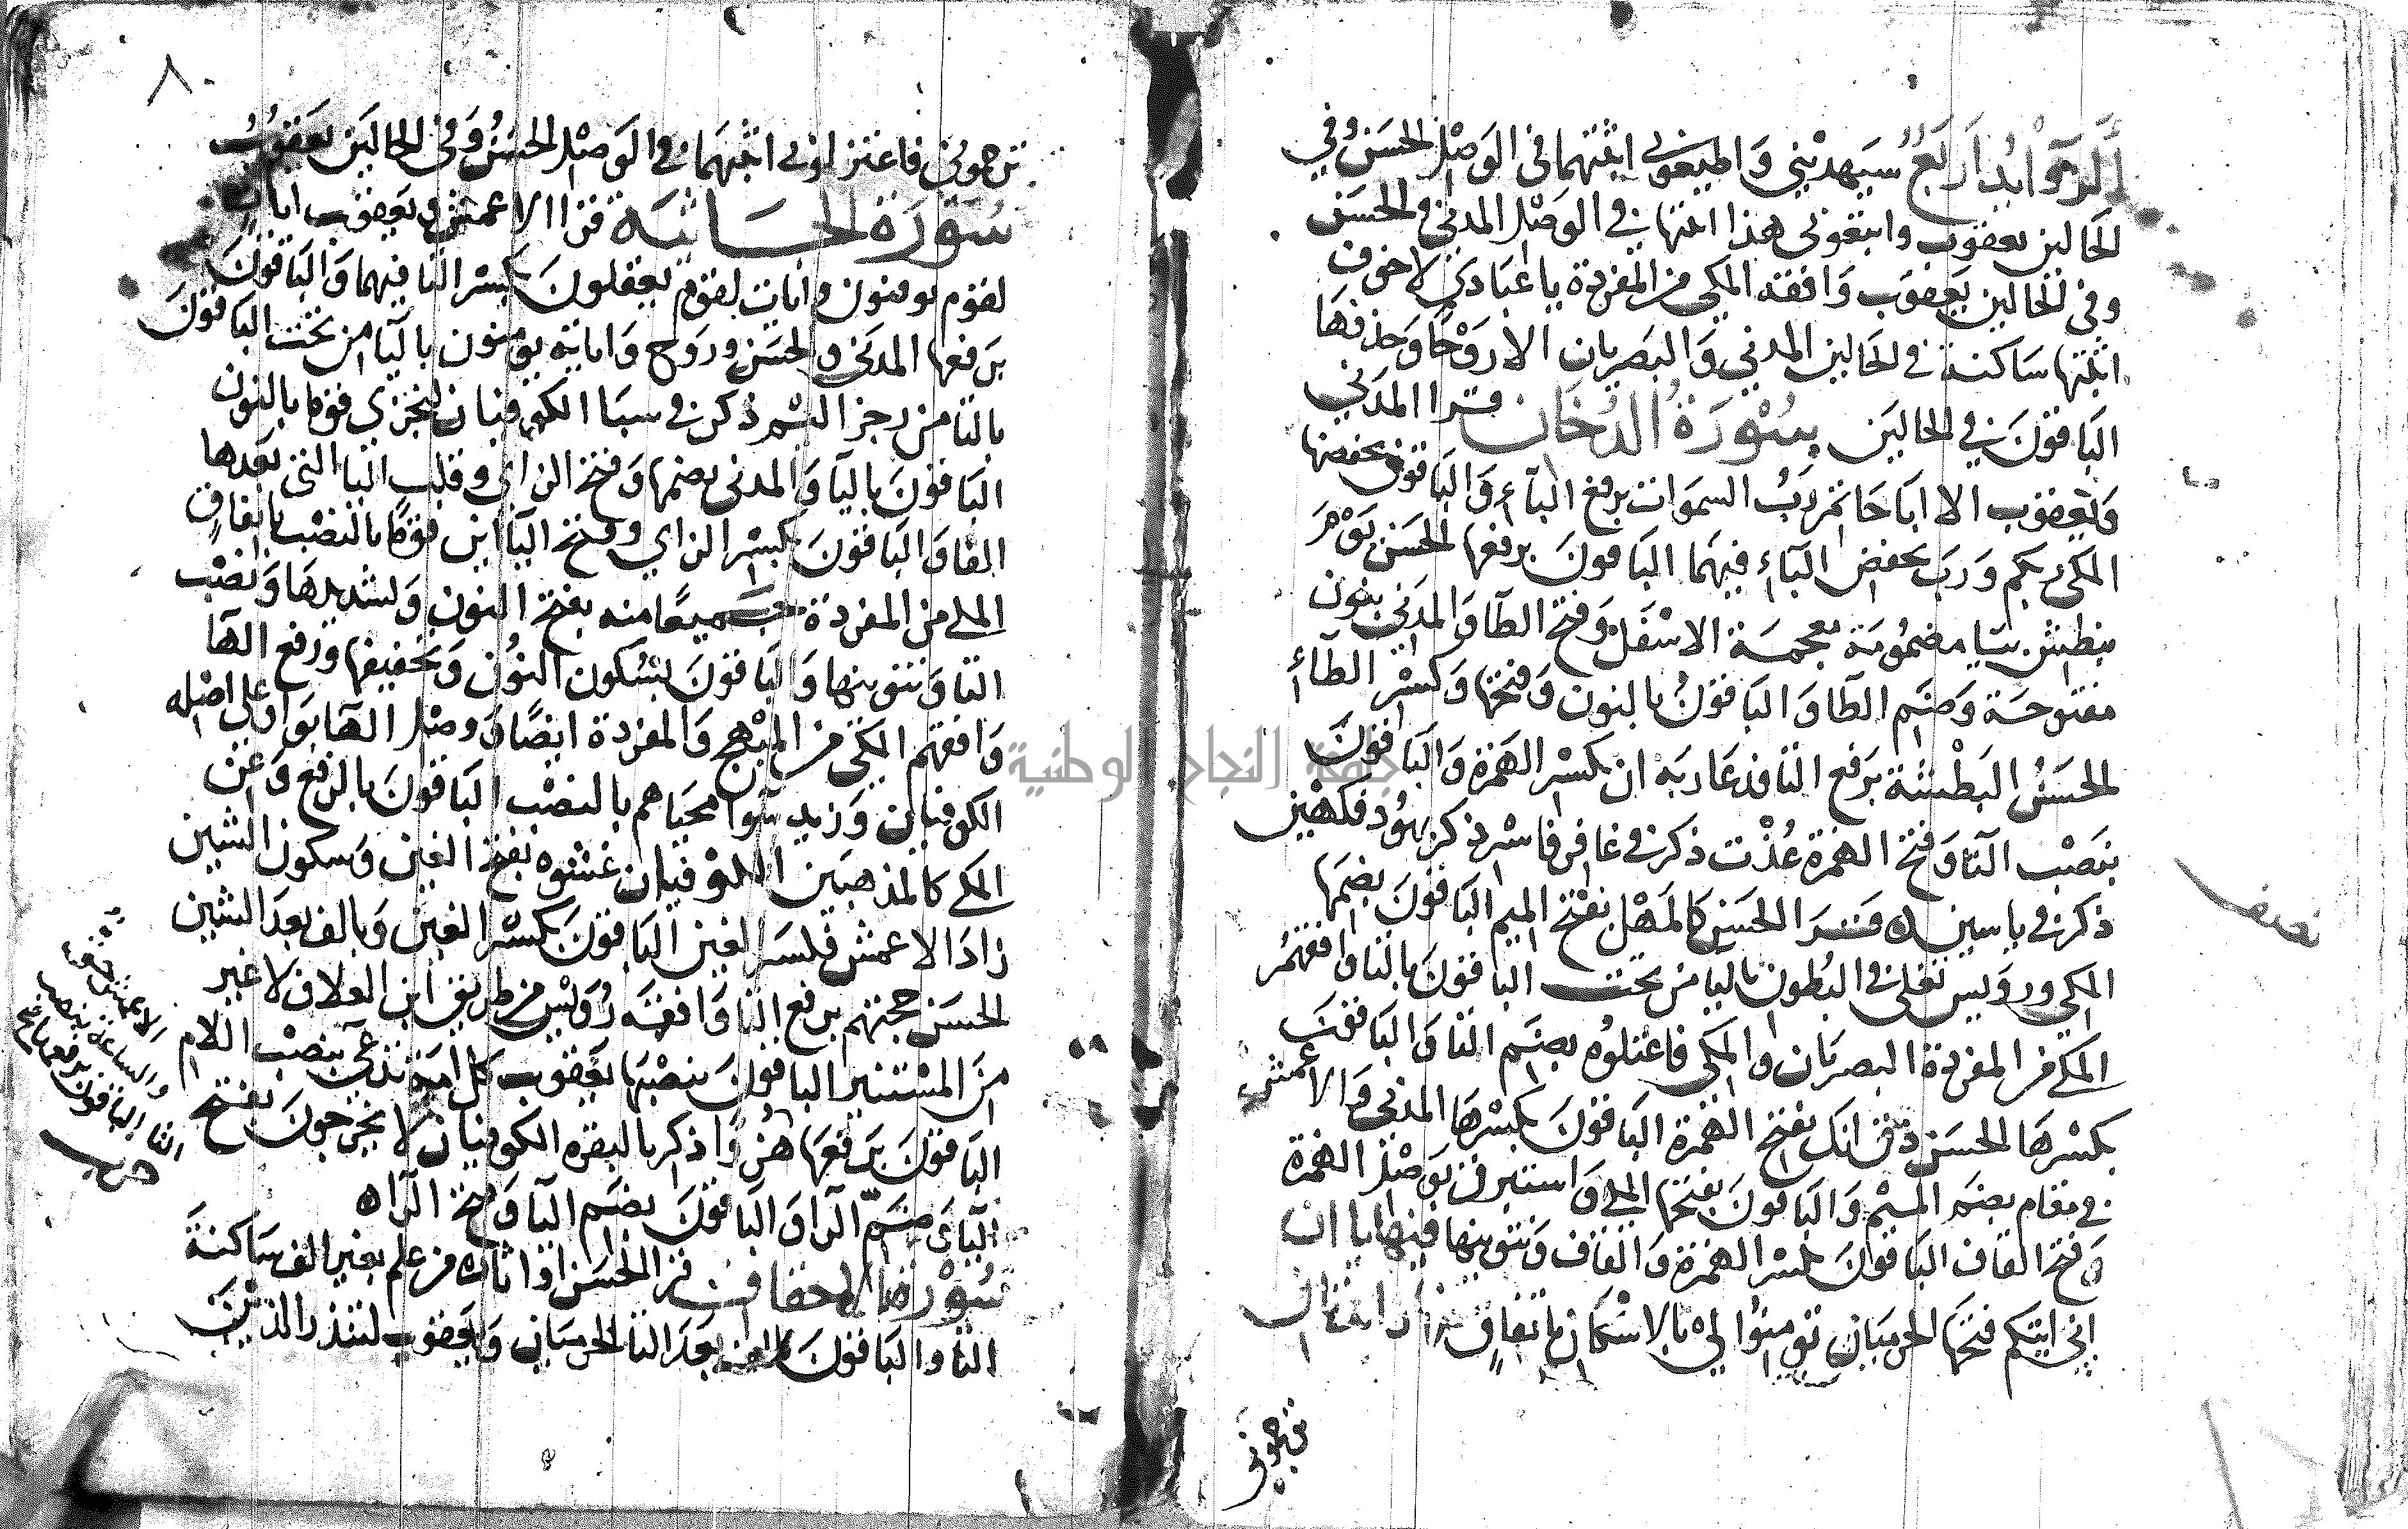 الزوائد أربعٌ سيهديني وَاطيعوني اثبتهما في الوَصْل الحسَن وفي
الحَالين يعقوب واتبعوني هذا اثبتها في الوَصْل المدني والحسَن
وفي الحالين يَعقوَب وَافقه المكي من المفردة يا عبَادي لا خوف
اثبتها سَاكنة في الحَالين المدني وَالبَصريان الا رَوْحًا وَحذفهَا
البَاقونَ في الحَاليَن سُوْرَةُ الدُخَان قرا المدَني
وَيعقوب الا ابَا حَاتم رَبُ السموَات برفع البآء وَالبَاقون بخفضها
المكي ربكم وَرَب بخفض البَاء فيهمَا البَاقونَ برفعها الحسَن يَوْمَ
يبطش بيَا مضمُومَة معجمَة الاسْفَل وَفتح الطآ وَالمدَني بنون
مفتوحَة وَضَم الطآ وَالبَاقونُ بالنون وَفتحهَا وَكسْر الطآء
الحسَنُ البَطْشَة برَفع التا فدعَا ربَه ان بكسْر الهَمزة وَالبَاقونَ
بنصْب التا وَفتح الهمزة عُذْت ذكر في غافر فاسْر ذكر بهُود فكهين
ذكر في ياسين ه قَرَا الحسَن كالمَهْل بفتح الميم البَاقونَ بضمهَا
المكي ورويس تغلي في البُطون باليَا من تحت البَاقونَ بالتا وَافقهمُ
المكي من المفردة البصريَان والمكي فاعتلوُه بضَم التا وَالبَاقونَ
بكسْرهَا الحسَن ذق انك بفتح الهمزة البَاقونَ بكسْرهَا المدني وَالاعمش
في مقام بضَم الميْم وَالبَاقونَ بفتحهَا المكي وَاستبرق بوَصْل الهمزة
وَفتح القاف البَاقونَ بكسر الهمزة وَالقَاف وَتنوينها فيها ياان
اني اتيكم فتحهَا الحرميَان تومنوا لي بالاسْكان باتفاقٍ زائدتان
ترجموني
ترجموني فاعتزلوني اثبتهمَا في الوَصْل الحسَنُ وَفي الحالَين يَعقوبُ
سُورَة الجَاثيَة قرا الاعمش ويَعقوب ايات
لقوم يوقنون وايات لقوم يعقلونَ بكسْر التا فيهما وَالبَاقونَ
برَفعها المدَني والحسَن وروح وَاياته يومنون باليَا من تحت البَاقونَ
بالتا من رجز اليم ذكر في سبا الكوفيان لنجزي قوما بالنون
البَاقونَ باليَا وَالمدني بضمهَا وَفتح الزاي وقلب اليَا التي بَعدهَا
الفا وَالبَاقونَ بكسْر الزاي وفتح اليَا قومًا بالنصْب باتفاقٍ
المكي من المفردة جَميعًا منه بفتح النون وَتشديدهَا وَنصْب
التا وَتنوينها وَالبَاقونَ بسُكون النوُن وَتخفيفها ورفع الهَا
وَافقهم المكي من المبْهج وَالمفردة ايضًا وَوصْل الهَا بوَاو على اصْله
الكوفيان وَزيد سَوآ محيَاهم بالنصْب البَاقونَ بالرفع وَعن
المكي كالمذهبَين الكوفيان غشوه بفتح الغين وسكون الشين
زادَ الاعمش فكسَر الغين البَاقونَ بكسْر الغين وَبالف بعدَ الشين
الحسَن حجتهم برفع التا وَافقه رُوَيْس من طريق ابن العلاف لا غير
منَ المسْتنير البَاقونَ بنصْبهَا يَعقوب كل امة تدعى بنصْب اللام
البَاقونَ برَفعهَا هُزوَا ذكر بالبقره الكوفيان لا يخرجونَ بفتح
اليَا وَضمّ الرا وَالبَاقونَ بضَم اليَا وَفتح الرا ه
سُوْرَة الاحقاف قرا الحسَن او اثرة من علم بغير الف سَاكنةَ
الثا والبَاقونَ بالف بعَدَ الثا الحرميَان وَيعقوب لتنذر الذيْنَ
الاعمش حمزة
والساعة بنصب
التا الباقون برفعها صح